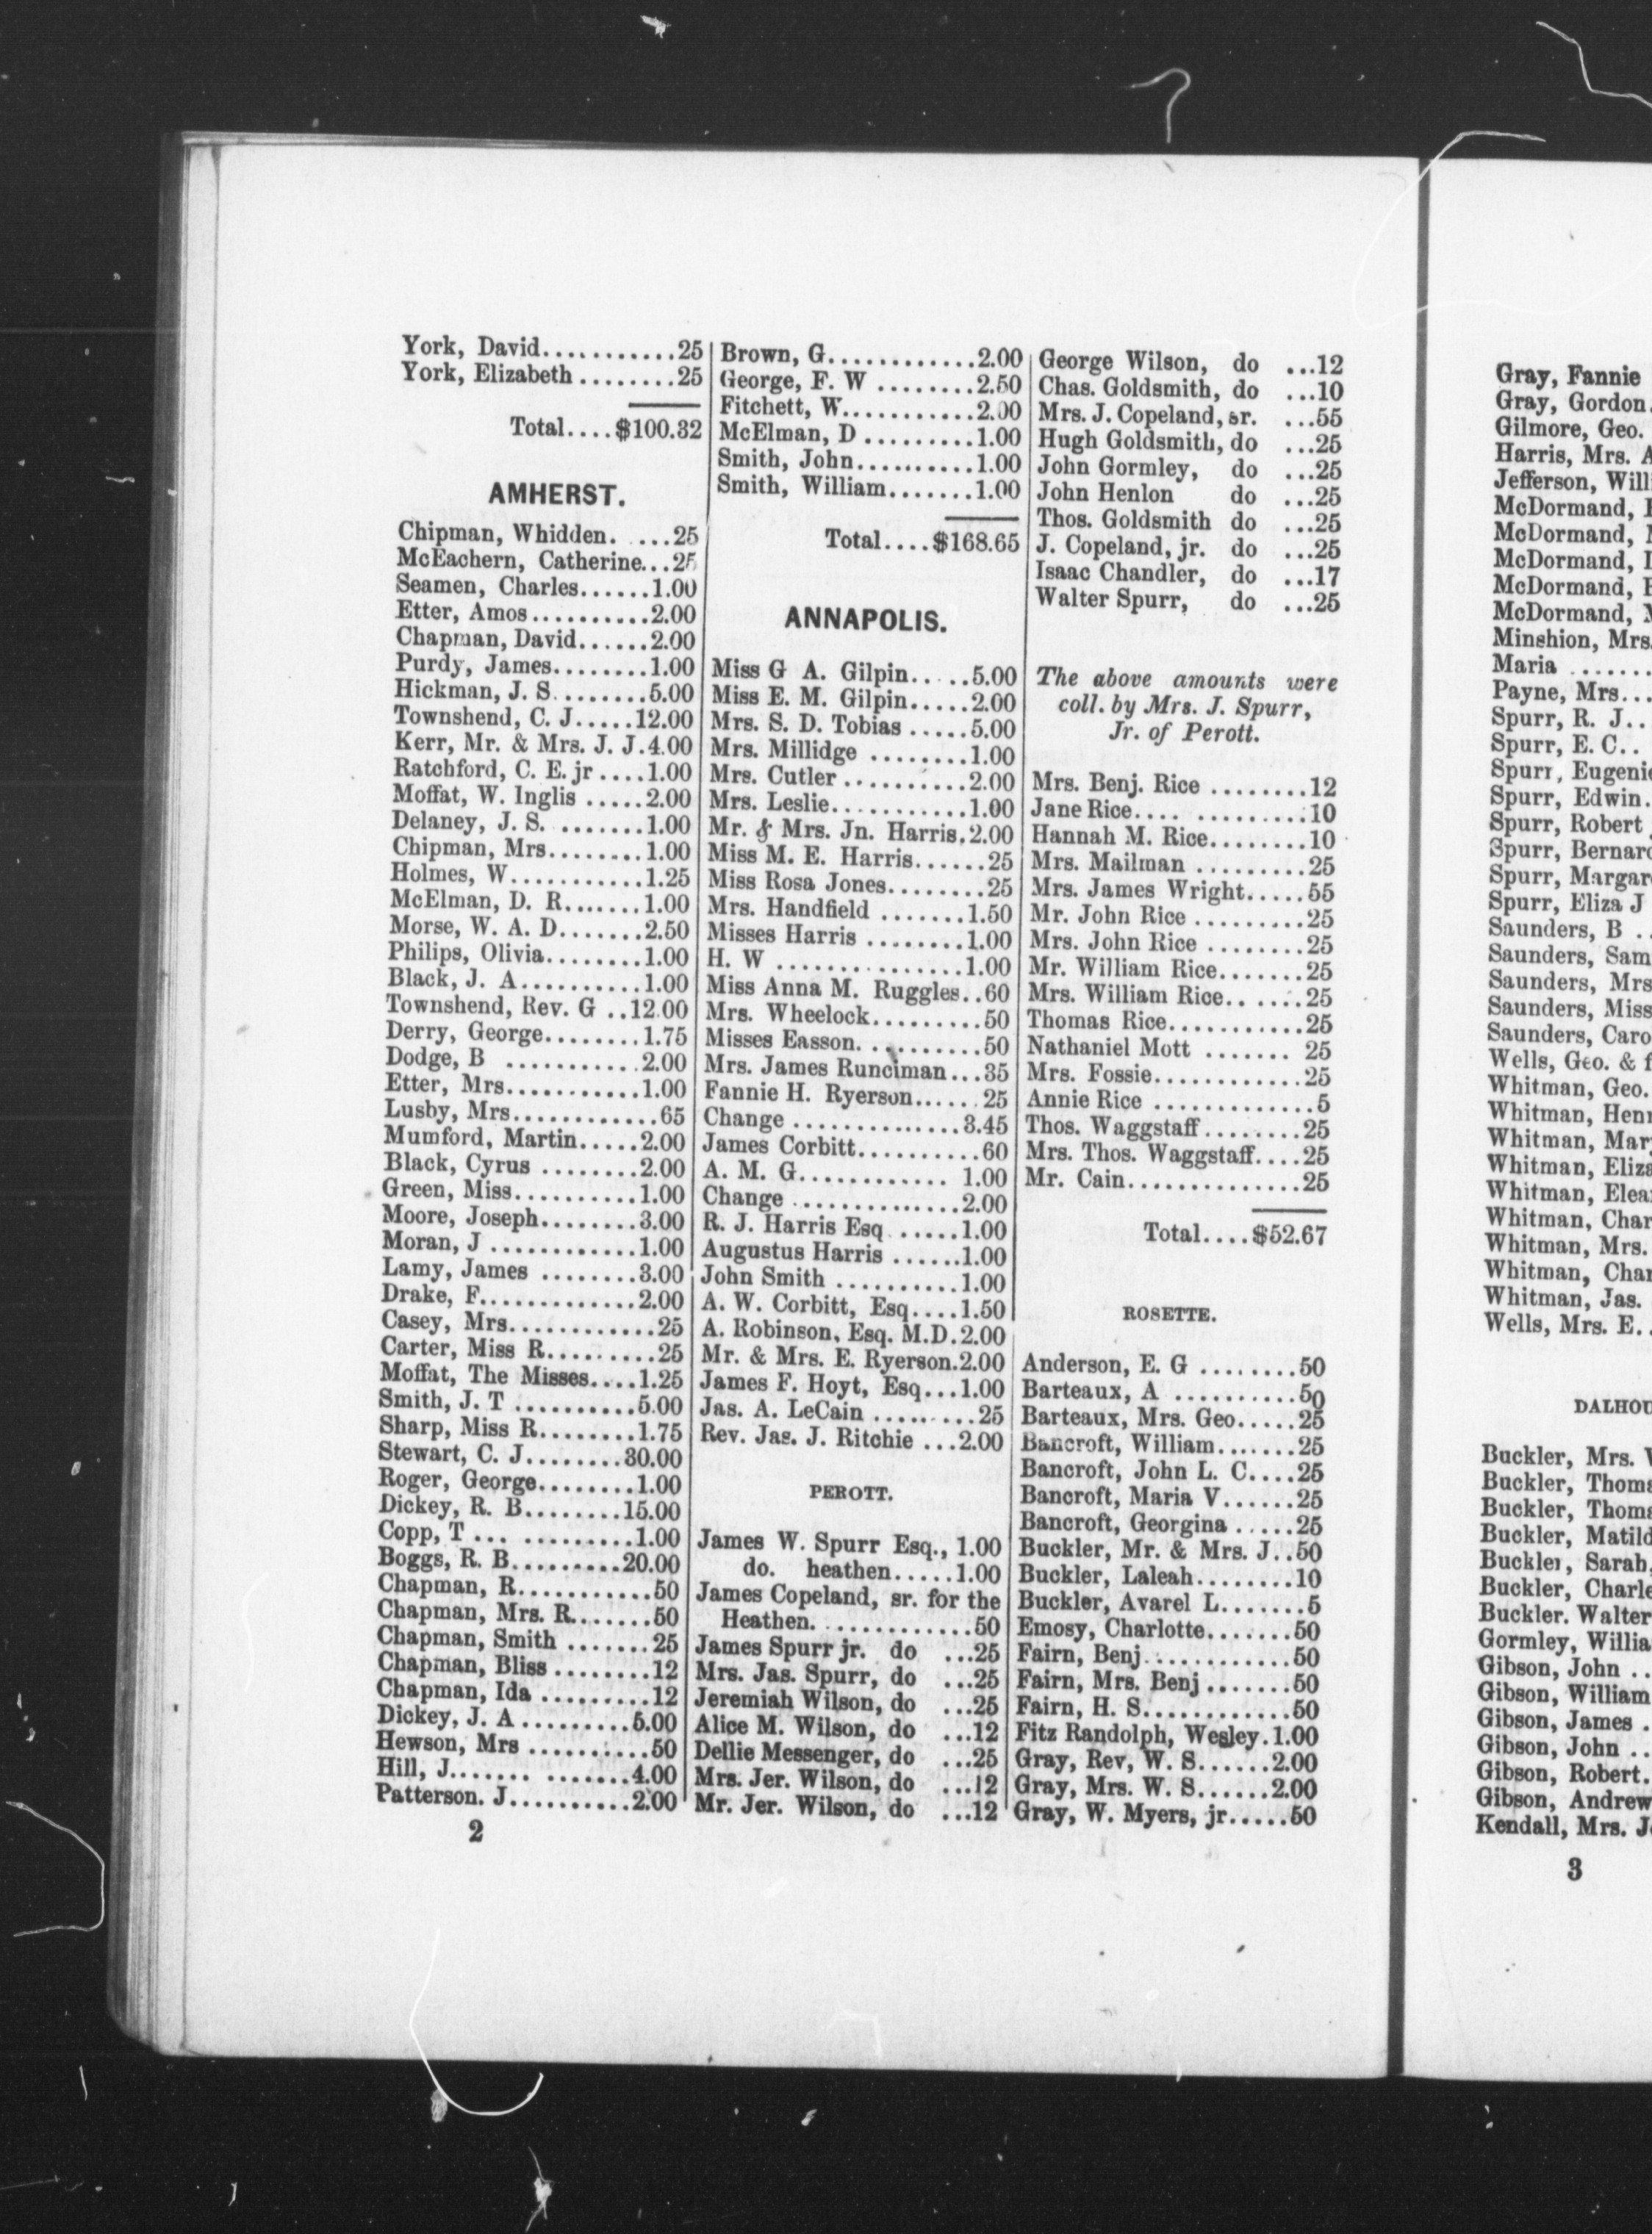 York, David............25
York, Elizabeth ........25
Total....$100.32
AMHERST.
Chipman, Whidden. ....25
McEachern, Catherine...25
Seamen, Charles......1.00
Etter, Amos..........2.00
Chapman, David......2.00
Purdy, James........1.00
Hickman, J. S........5.00
Townshend, C. J.....12.00
Kerr, Mr. & Mrs. J. J.4.00
Ratchford, C. E. jr ....1.00
Moffat, W. Inglis .....2.00
Delaney, J. S. .......1.00
Chipman, Mrs........1.00
Holmes, W...........1.25
McElman, D. R.......1.00
Morse, W. A. D.......2.50
Philips, Olivia........1.00
Black, J. A..........1.00
Townshend, Rev. G ..12.00
Derry, George........1.75
Dodge, B ...........2.00
Etter, Mrs...........1.00
Lusby, Mrs............65
Mumford, Martin.....2.00
Black, Cyrus ........2.00
Green, Miss..........1.00
Moore, Joseph........3.00
Moran, J ............1.00
Lamy, James ........3.00
Drake, F.............2.00
Casey, Mrs............25
Carter, Miss R.........25
Moffat, The Misses....1.25
Smith, J. T ..........5.00
Sharp, Miss R........1.75
Stewart, C. J........30.00
Roger, George........1.00
Dickey, R. B........15.00
Copp, T ... .........1.00
Boggs, R. B.........20.00
Chapman, R...........50
Chapman, Mrs. R.......50
Chapman, Smith .......25
Chapman, Bliss ........12
Chapman, Ida .........12
Dickey, J. A .........5.00
Hewson, Mrs ..........50
Hill, J....... .......4.00
Patterson. J..........2.00
2
Brown, G............2.00
George, F. W ........2.50
Fitchett, W...........2.00
McElman, D .........1.00
Smith, John..........1.00
Smith, William.......1.00
Total....$168.65
ANNAPOLIS.
Miss G A. Gilpin.. ..5.00
Miss E. M. Gilpin.....2.00
Mrs. S. D. Tobias .....5.00
Mrs. Millidge ........1.00
Mrs. Cutler ..........2.00
Mrs. Leslie...........1.00
Mr. & Mrs. Jn. Harris.2.00
Miss M. E. Harris......25
Miss Rosa Jones........25
Mrs. Handfield .......1.50
Misses Harris ........1.00
H. W ...............1.00
Miss Anna M. Ruggles..60
Mrs. Wheelock.........50
Misses Easson...........50
Mrs. James Runciman...35
Fannie H. Ryerson......25
Change ..............3.45
James Corbitt..........60
A. M. G............ 1.00
Change ..............2.00
R. J. Harris Esq ......1.00
Augustus Harris ......1.00
John Smith ..........1.00
A. W. Corbitt, Esq....1.50
A. Robinson, Esq. M.D.2.00
Mr. & Mrs. E. Ryerson.2.00
James F. Hoyt, Esq...1.00
Jas. A. LeCain .........25
Rev. Jas. J. Ritchie ...2.00
PEROTT.
James W. Spurr Esq., 1.00
do. heathen.....1.00
James Copeland, sr. for the
Heathen.............50
James Spurr jr. do ...25
Mrs. Jas. Spurr, do ...25
Jeremiah Wilson, do ...25
Alice M. Wilson, do ...12
Dellie Messenger, do ...25
Mrs. Jer. Wilson, do ...12
Mr. Jer. Wilson, do ...12
George Wilson, do ...12
Chas. Goldsmith, do ...10
Mrs. J. Copeland, sr. ...55
Hugh Goldsmith, do ...25
John Gormley, do ...25
John Henlon do ...25
Thos. Goldsmith do ...25
J. Copeland, jr. do ...25
Isaac Chandler, do ...17
Walter Spurr, do ...25
The above amounts were
coll. by Mrs. J. Spurr,
Jr. of Perott.
Mrs. Benj. Rice ........12
Jane Rice.... ..........10
Hannah M. Rice........10
Mrs. Mailman .........25
Mrs. James Wright.....55
Mr. John Rice .........25
Mrs. John Rice ........25
Mr. William Rice.......25
Mrs. William Rice.. .....25
Thomas Rice...........25
Nathaniel Mott ....... 25
Mrs. Fossie............25
Annie Rice .............5
Thos. Waggstaff........25
Mrs. Thos. Waggstaff....25
Mr. Cain..............25
Total....$52.67
ROSETTE.
Anderson, E. G ........50
Barteaux, A ..........50
Barteaux, Mrs. Geo.....25
Bancroft, William.......25
Bancroft, John L. C....25
Bancroft, Maria V......25
Bancroft, Georgina .....25
Buckler, Mr. & Mrs. J..50
Buckler, Laleah........10
Buckler, Avarel L.......5
Emosy, Charlotte.......50
Fairn, Benj............50
Fairn, Mrs. Benj .......50
Fairn, H. S............50
Fitz Randolph, Wesley.1.00
Gray, Rev, W. S......2.00
Gray, Mrs. W. S......2.00
Gray, W. Myers, jr.....50
Gray, Fannie
Gray, Gordon.
Gilmore, Geo.
Harris, Mrs.
Jefferson,
McDormand,
McDormand,
McDormand,
McDormand,
McDormand,
Minshion, Mrs.
Maria .......
Payne, Mrs...
Spurr, R. J..
Spurr, E. C..
Spurr,
Spurr, Edwin.
Spurr, Robert
Spurr,
Spurr,
Spurr, Eliza J
Saunders, B ..
Saunders,
Saunders, Mrs
Saunders, Miss
Saunders,
Wells, Geo. &
Whitman, Geo.
Whitman,
Whitman,
Whitman,
Whitman,
Whitman,
Whitman, Mrs.
Whitman,
Whitman, Jas.
Wells, Mrs. E..
Buckler, Mrs.
Buckler,
Buckler,
Buckler,
Buckler, Sarah,
Buckler,
Buckler. Walter
Gormley,
Gibson, John ..
Gibson, William
Gibson, James .
Gibson, John ..
Gibson, Robert.
Gibson, Andrew
Kendall, Mrs.
3